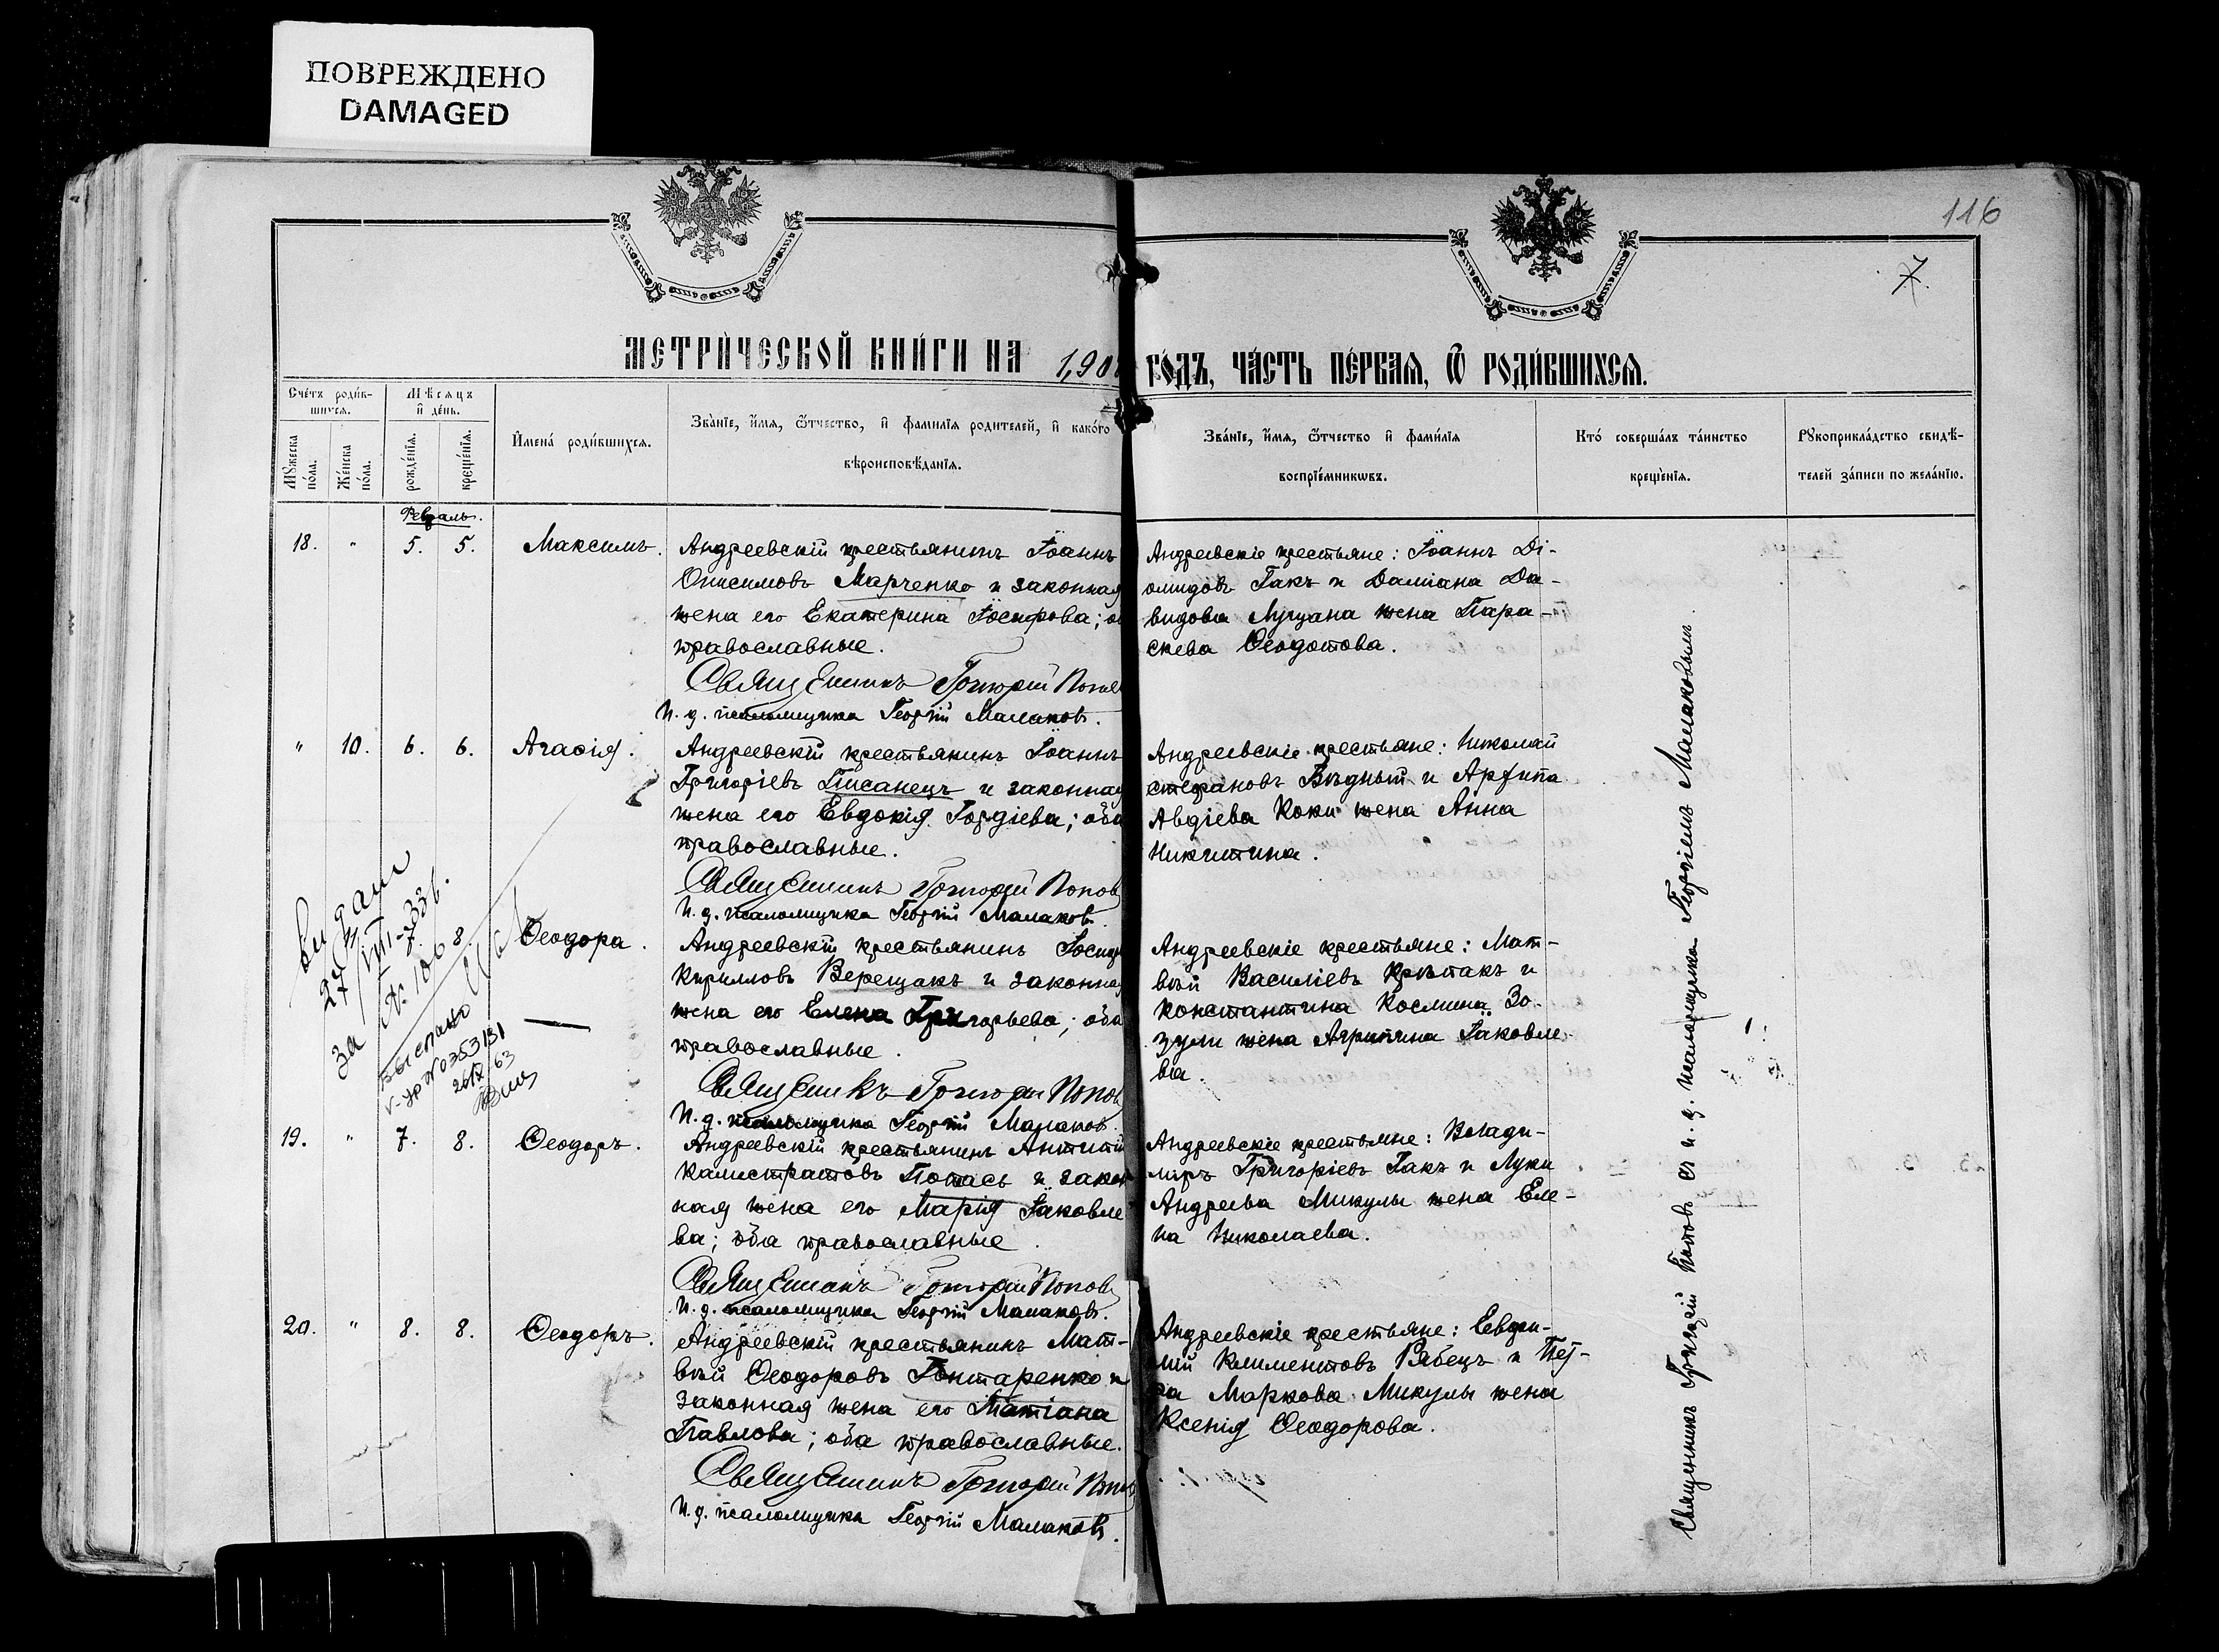 ПОВРЕЖДЕНО
DAMAGED
116
7.
МЕТРИ́ЧЕСКОЙ КНИ́ГИ НА 190
ГО́ДЪ, ЧА́СТЬ ПЕ́РВАЯ, Ѿ РОДИ́ВШИХСЯ.
Сче́тъ роди́в-
шихся.
Мѣ́сяцъ
и҆ де́нь.
Мꙋ́жеска
по́ла.
Же́нска
по́ла.
рожде́нїя.
креще́нїя.
И҆мена̀ роди́вшихся.
Зва́нїе, и҆́мя, ѻ҆́тчество, и҆ фами́лїя родителей, и҆ како́го
вѣроисповѣ́данїя.
Зва́нїе, и҆́мя, ѻ҆́тчество и҆ фами́лїя
воспрїе́мникѡвъ.
Кто̀ соверша́лъ та́инство
креще́нїя.
Рꙋкоприкла́дство свидѣ́-
телей за́писи по жела́нїю.
Февраль.
18. " 5. 5. Максимъ.
Андреевскій крестьянинъ Іоаннъ
Онисимовъ Марченко и законная
жена его Екатерина Іосифова;
православные.
Священникъ Григорій
И. д. псаломщика Георгій Малаковъ.
Андреевскіе крестьяне: Іоаннъ Ді-
омидовъ Гакъ и Даміана Да-
видова Луцана жена Пара-
скева Ѳеодотова.
" 10. 6. 6. Агаѳія.
Андреевскій крестьянинъ Іоаннъ
Григоріевъ Писанецъ и законная
жена его Евдокія Гордіева; оба
православные.
Священникъ Григорій Поповъ
И. д. псаломщика Георгій Малаковъ.
Андреевскіе крестьяне: Николай
Стефановъ Бѣдный и Архипа
Авдіева Коки жена Анна
Никитина.
видано
за № 1068
Выслано
V-УР № 0353131
Ѳеодора.
Андреевскій крестьянинъ Іосифъ
Кирилловъ Верещакъ и законная
жена его Елена Григорьева; оба
православные.
Священникъ Григорій Поповъ
И. д. псаломщика Георгій Малаковъ.
Андреевскіе крестьяне: Мат-
вѣй Василіевъ и
Константина Космина Зо-
зули жена Агрипина Іаковле-
ва.
19. " 7. 8. Ѳеодоръ.
Андреевскій крестьянинъ Антипій
Калистратовъ Потась и закон
ная жена его Марія Іаковле
ва; оба православные.
Священникъ Григорій Поповъ
И. д. псаломщика Георгій Малаковъ.
Андреевскіе крестьяне: Влади-
міръ Григоріевъ Гакъ и Луки
Андреева Микулы жена Еле-
на Николаева.
20. " 8. 8. Ѳеодоръ.
Андреевскій крестьянинъ Мат-
вѣй Ѳеодоровъ Гонтаренко и
законная жена его Татіана
Павлова; оба православные.
Священникъ Григорій Поповъ
И. д. псаломщика Георгій Малаковъ.
Андреевскіе крестьяне: Евфи-
мій Климентовъ Рябецъ и Пет-
ра Маркова Микулы жена
Ксенія Ѳеодорова.
Священникъ Григорій Поповъ съ и. д. псаломщика Георгіемъ Малаковымъ